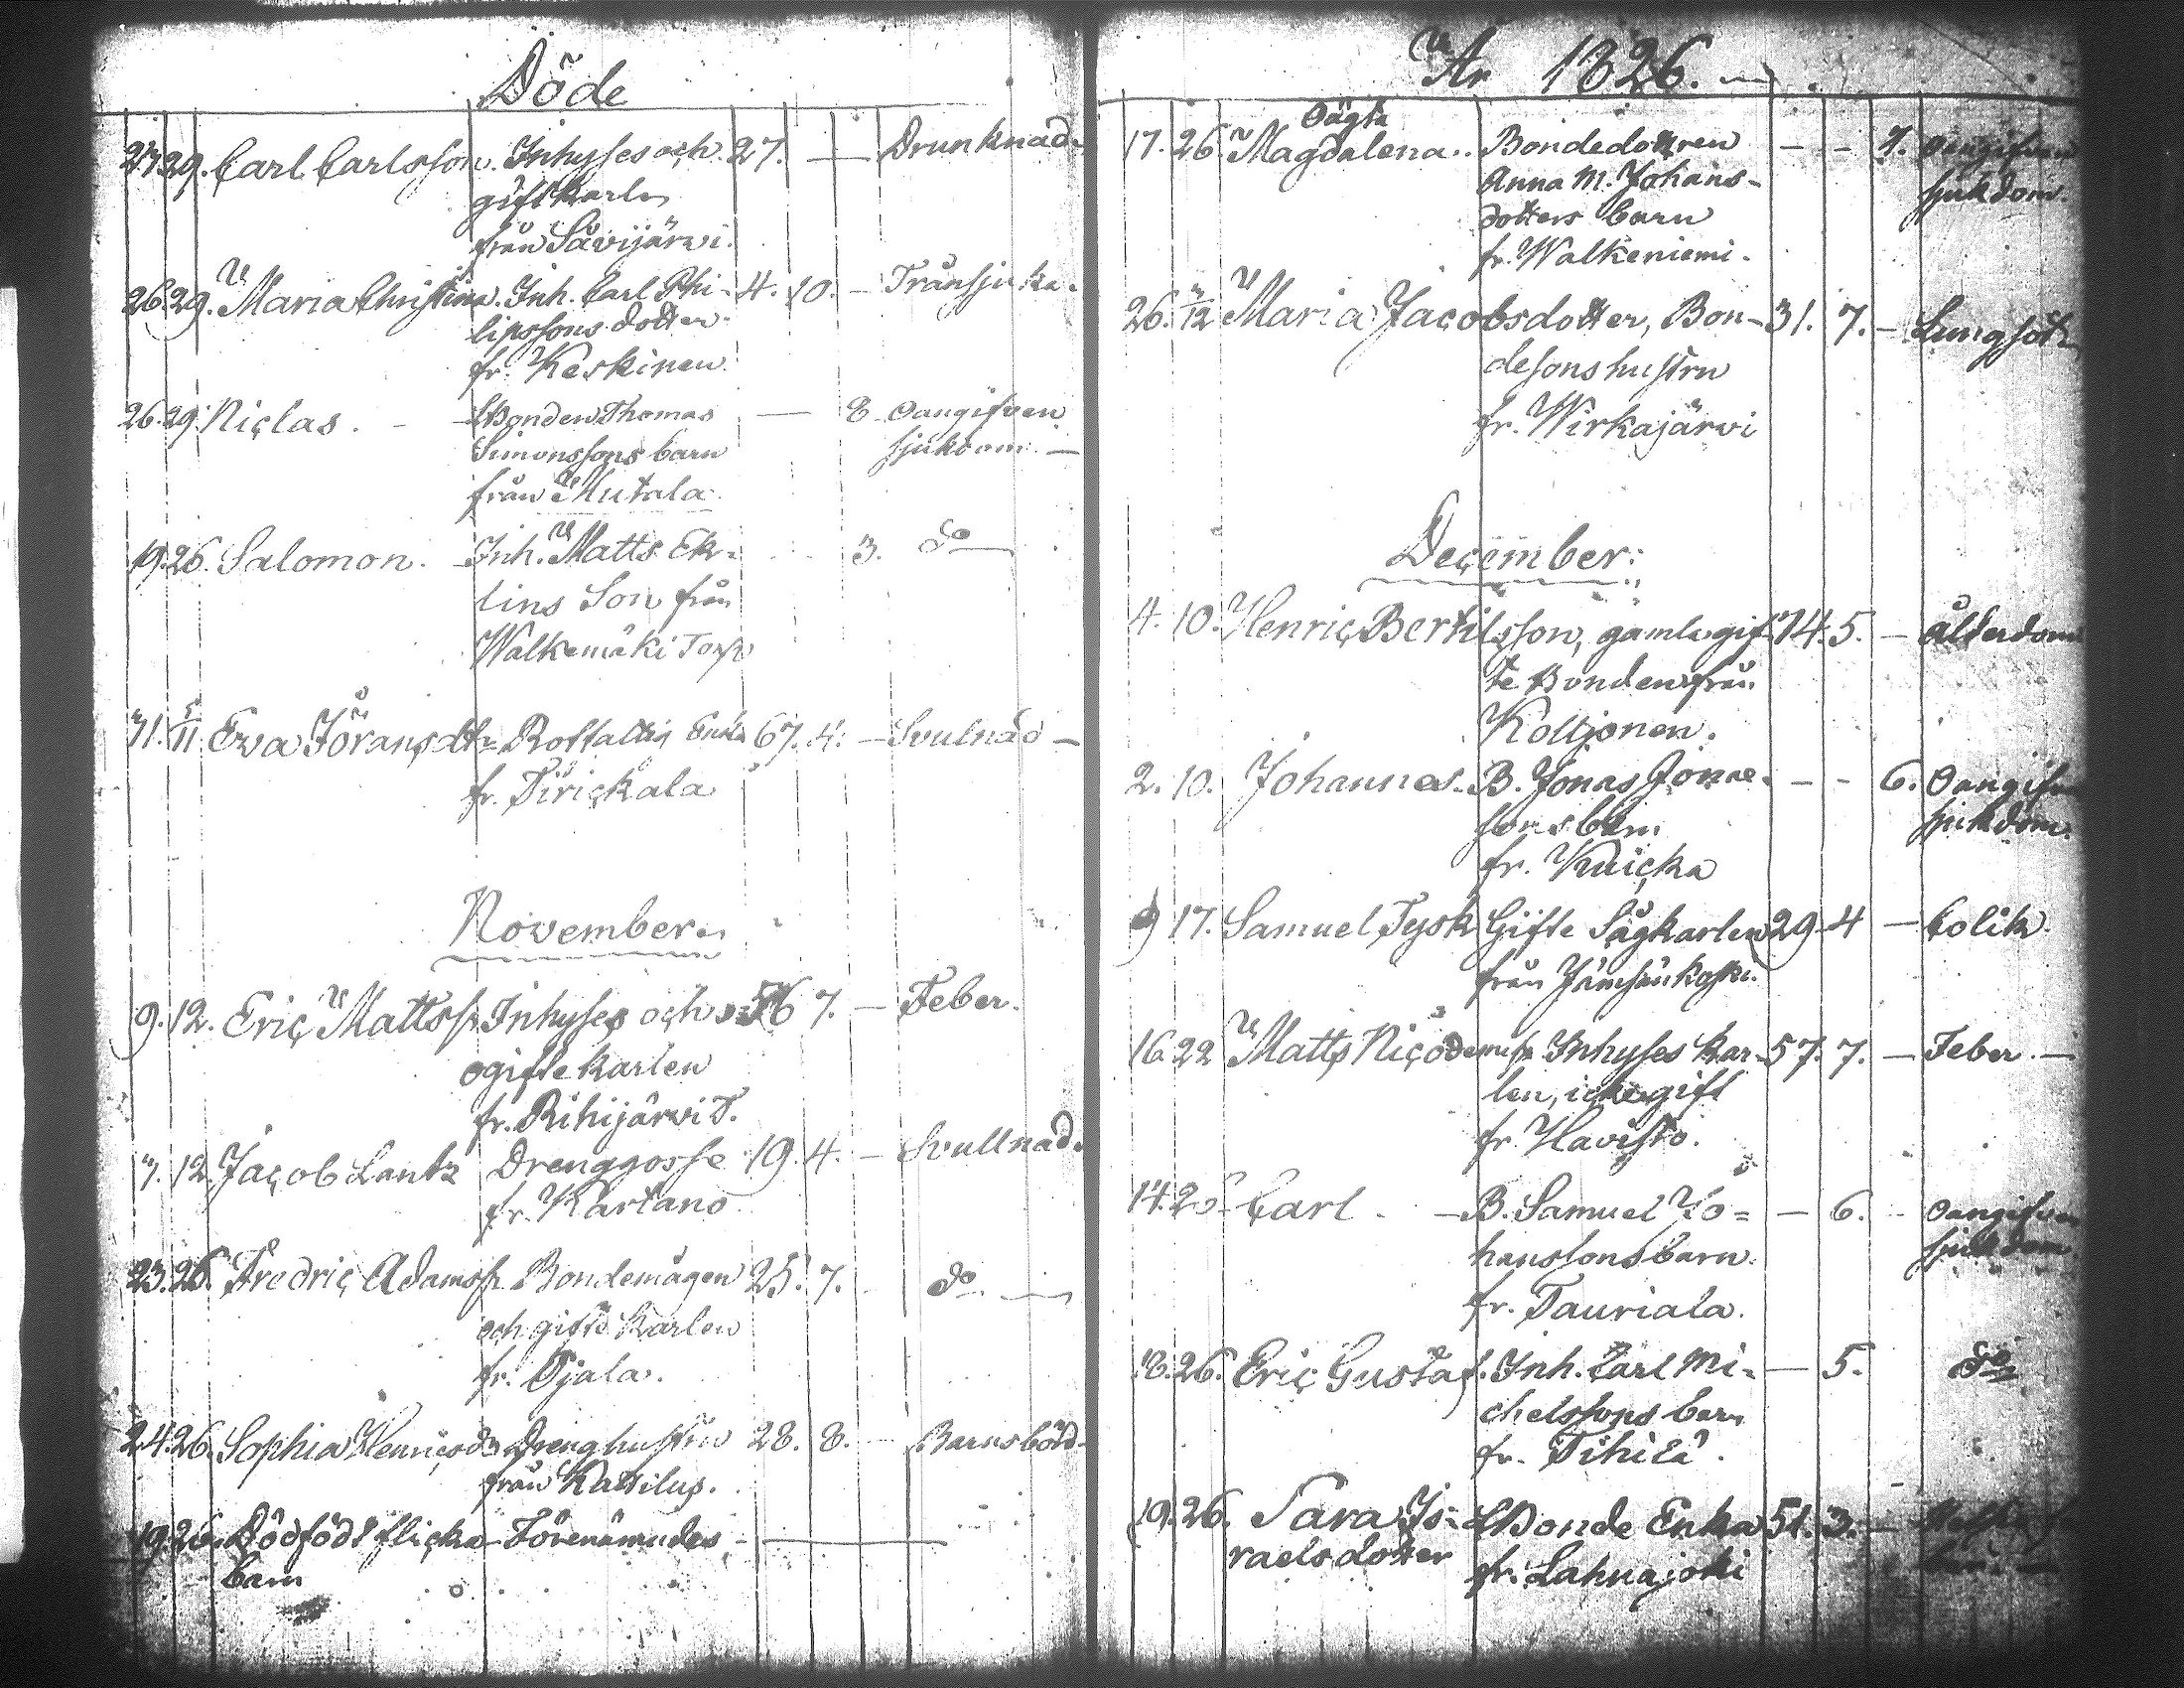 Döde
27. 29. Carl Carlsson. Inhyses och 27. — Drunknad.
gift karln
från Savijärvi.
26. 29. Maria Christina. Inh. Carl Phi- 4. 10. — Trånsjuka.
lipssons dotter
fr. Keskinen.
26. 29. Niclas. - Bonden Thomas — 8. Oangifven
Simonssons barn sjukdom. —
från Mutala.
19. 26. Salomon. Inh. Matts Ek- 3. do
lins Son från
Walkemäki Torp
31. 5/11. Eva Göransdtr Rottaltig Enka 67. 4. — Svulnad —
fr. Pirickala
November.
9. 12. Eric Mattss. Inhyses och 56 7. — Feber.
ogifte karlen
fr. Rihijärvi T.
7. 12. Jacob Lantz Drenggosse 19. 4. — Svullnad.
fr. Kartano
23. 26. Fredric Adamss. Bondemågen 25. 7. do.
och gifte karlen
fr. Ojala.
24. 26. Sophia Henricsdr Drenghustru 28. 8. — Barnsbörd.
från Kassilus.
19. 26. Dödfödt flicka- Förenämndes —
barn
År 1826.
Oägta
17. 26. Magdalena. Bondedottren — - 7. Oangifven
Anna M. Johans- sjukdom.
dotters barn
fr. Walkeniemi.
26. 3/12 Maria Jacobsdotter, Bon- 31. 7. — Lungsot
desons hustru
fr. Wirkajärvi
December:
4. 10. Henric Bertilsson, gamle gif- 74. 5. — ålderdom
te Bonden från
Koltjonen.
2. 10. Johannes. B. Jonas Jonae- - - 6. Oangifven
sons barn sjukdom.
fr. Kuicka
9 17. Samuel Tysk Gifte Sågkarlen 29. 4 — Colik.
från Jämsänkoski.
16. 22 Matts Nicodemuss. Inhyses Kar- 57. 7. — Feber. —
len, icke gift
fr. Havisto.
14. 26. Carl. — B. Samuel Jo= — 6. - Oangifven
hanssons barn. sjukdom.
fr. Tauriala.
18. 26. Eric Gustaf. Inh. Carl Mi- — 5. do
chelssons barn
fr. Tihilä.
19. 26. Sara Is- Bonde Enka 51. 3. —
raelsdotter fr. Lahnajoki